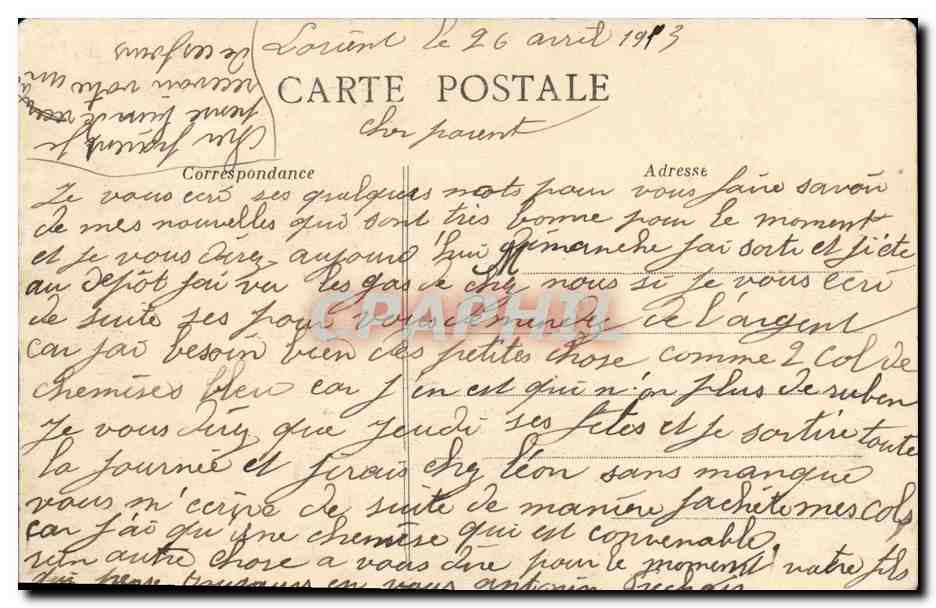 Lorient le 26 avril 1913
CARTE POSTALE
cher parent
Correspondance
Adresse
Je vous ecri ses quelques mots pour vous faire savoir
de mes nouvelles qui sont très bonne pour le moment
et je vous direz aujourd'hui dimanche j'ai sorti et j'ete
au depôt j'ai vu les gas de chez nous si je vous ecri
de suite ses pour vous demandez de l'argent
car j'ai besoin bien des petites chose comme 2 col de
chemises bleu car j'en est qui n'on plus de ruben
Je vous direz que jeudi ses fêtes et je sortire toute
la journée et j'irais chez léon sans manque
vous m'ecrire de suite de manière j'achête mes cols
car j'ai qu'une chemise qui est convenable,
rien autre chose a vous dire pour le moment votre fils
qui pense toujours en vous antonin
cher parent je
recevoir votre un
de ses jours
CPAPHIL